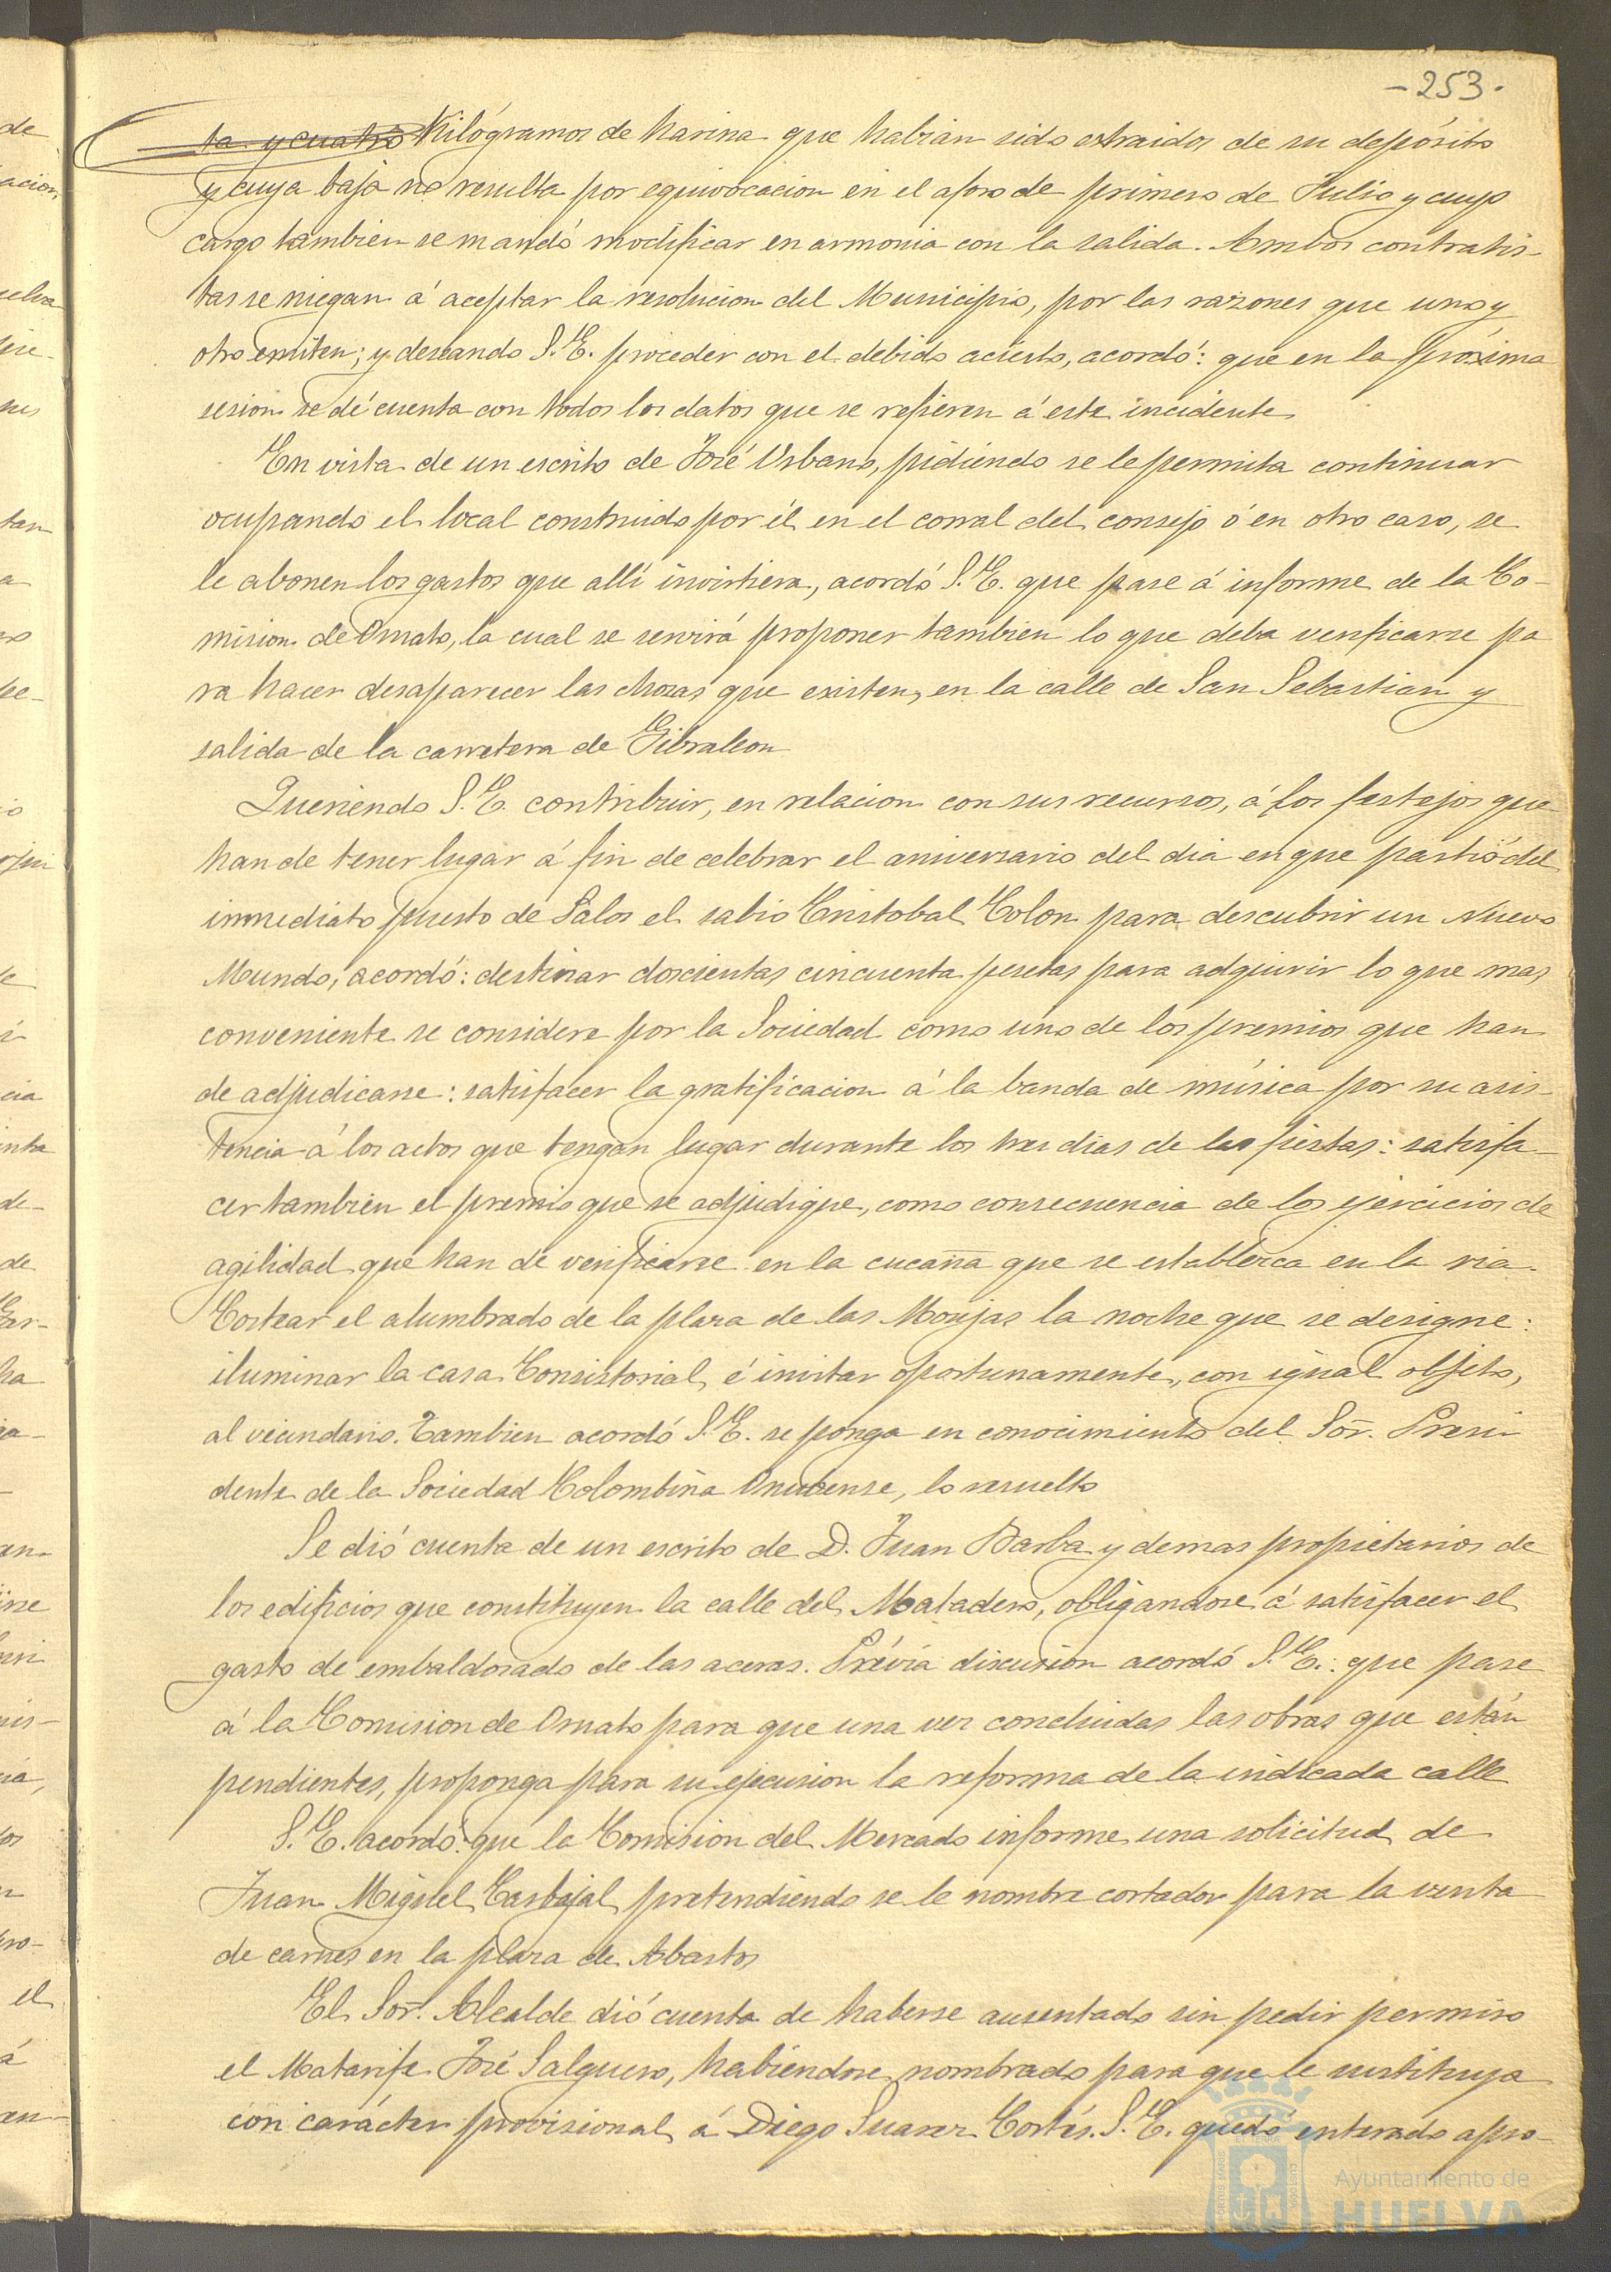 - 253 -
ta y cuatro Kilógramos de harina que habian sido extraidos de su depósito
y cuya baja no resulta por equivocacion en el aforo de primero de Julio y cuyo
cargo tambien se mandó modificar en armonia con la salida. Ambos contratis-
tas se niegan á aceptar la resolucion del Municipio, por las razones que uno y
otro emiten; y deseando S.E. proceder con el debido acierto, acordó: que en la próxima
sesion se dé cuenta con todos los datos que se refieren á este incidente
En vista de un escrito de José Urbano, pidiendo se le permita continuar
ocupando el local construido por él en el corral del consejo ó en otro caso, se
le abonen los gastos que allí invirtiera, acordó S.E. que pase á informe de la Co-
mision de Ornato, la cual se servirá proponer tambien lo que deba verificarse pa
ra hacer desaparecer las chozas que existen, en la calle de San Sebastian y
salida de la carretera de Gibraleon
Queriendo S.E. contribuir, en relacion con sus recursos, á los festejos que
han de tener lugar á fin de celebrar el aniversario del dia en que partió del
inmediato puerto de Palos el sabio Cristobal Colon para descubrir un Nuevo
Mundo, acordó: destinar doscientas cincuenta pesetas para adquirir lo que mas
conveniente se considere por la Sociedad como uno de los premios que han
de adjudicarse: satisfacer la gratificacion á la banda de música por su asis-
tencia á los actos que tengan lugar durante los tres dias de las fiestas: satisfa-
cer tambien el premio que se adjudique, como consecuencia de los ejercicios de
agilidad que han de verificarse en la cucaña que se establezca en la ria.
Costear el alumbrado de la plaza de las Monjas la noche que se designe:
iluminar la casa Consistorial, é invitar oportunamente, con igual objeto,
al vecindario. Tambien acordó S.E. se ponga en conocimiento del Sor. Presi
dente de la Sociedad Colombina Onubense, lo resuelto
Se dió cuenta de un escrito de D. Juan Barba y demas propietarios de
los edificios que constituyen la calle del Matadero, obligandose á satisfacer el
gasto de embaldosado de las aceras. Prévia discusion acordó S.E.: que pase
á la Comision de Ornato para que una vez concluidas las obras que están
pendientes, proponga para su ejecusion la reforma de la indicada calle
S.E. acordó: que la Comision del Mercado informe una solicitud de
Juan Miguel Carbajal, pretendiendo se le nombre cortador para la venta
de carnes en la plaza de Abastos
El Sor. Alcalde dió cuenta de haberse ausentado sin pedir permiso
el Matarife José Salguero, habiendose nombrado para que le sustituya
con carácter provisional á Diego Suarez Cortés. S.E. quedó enterado apro-
Ayuntamiento de
HUELVA